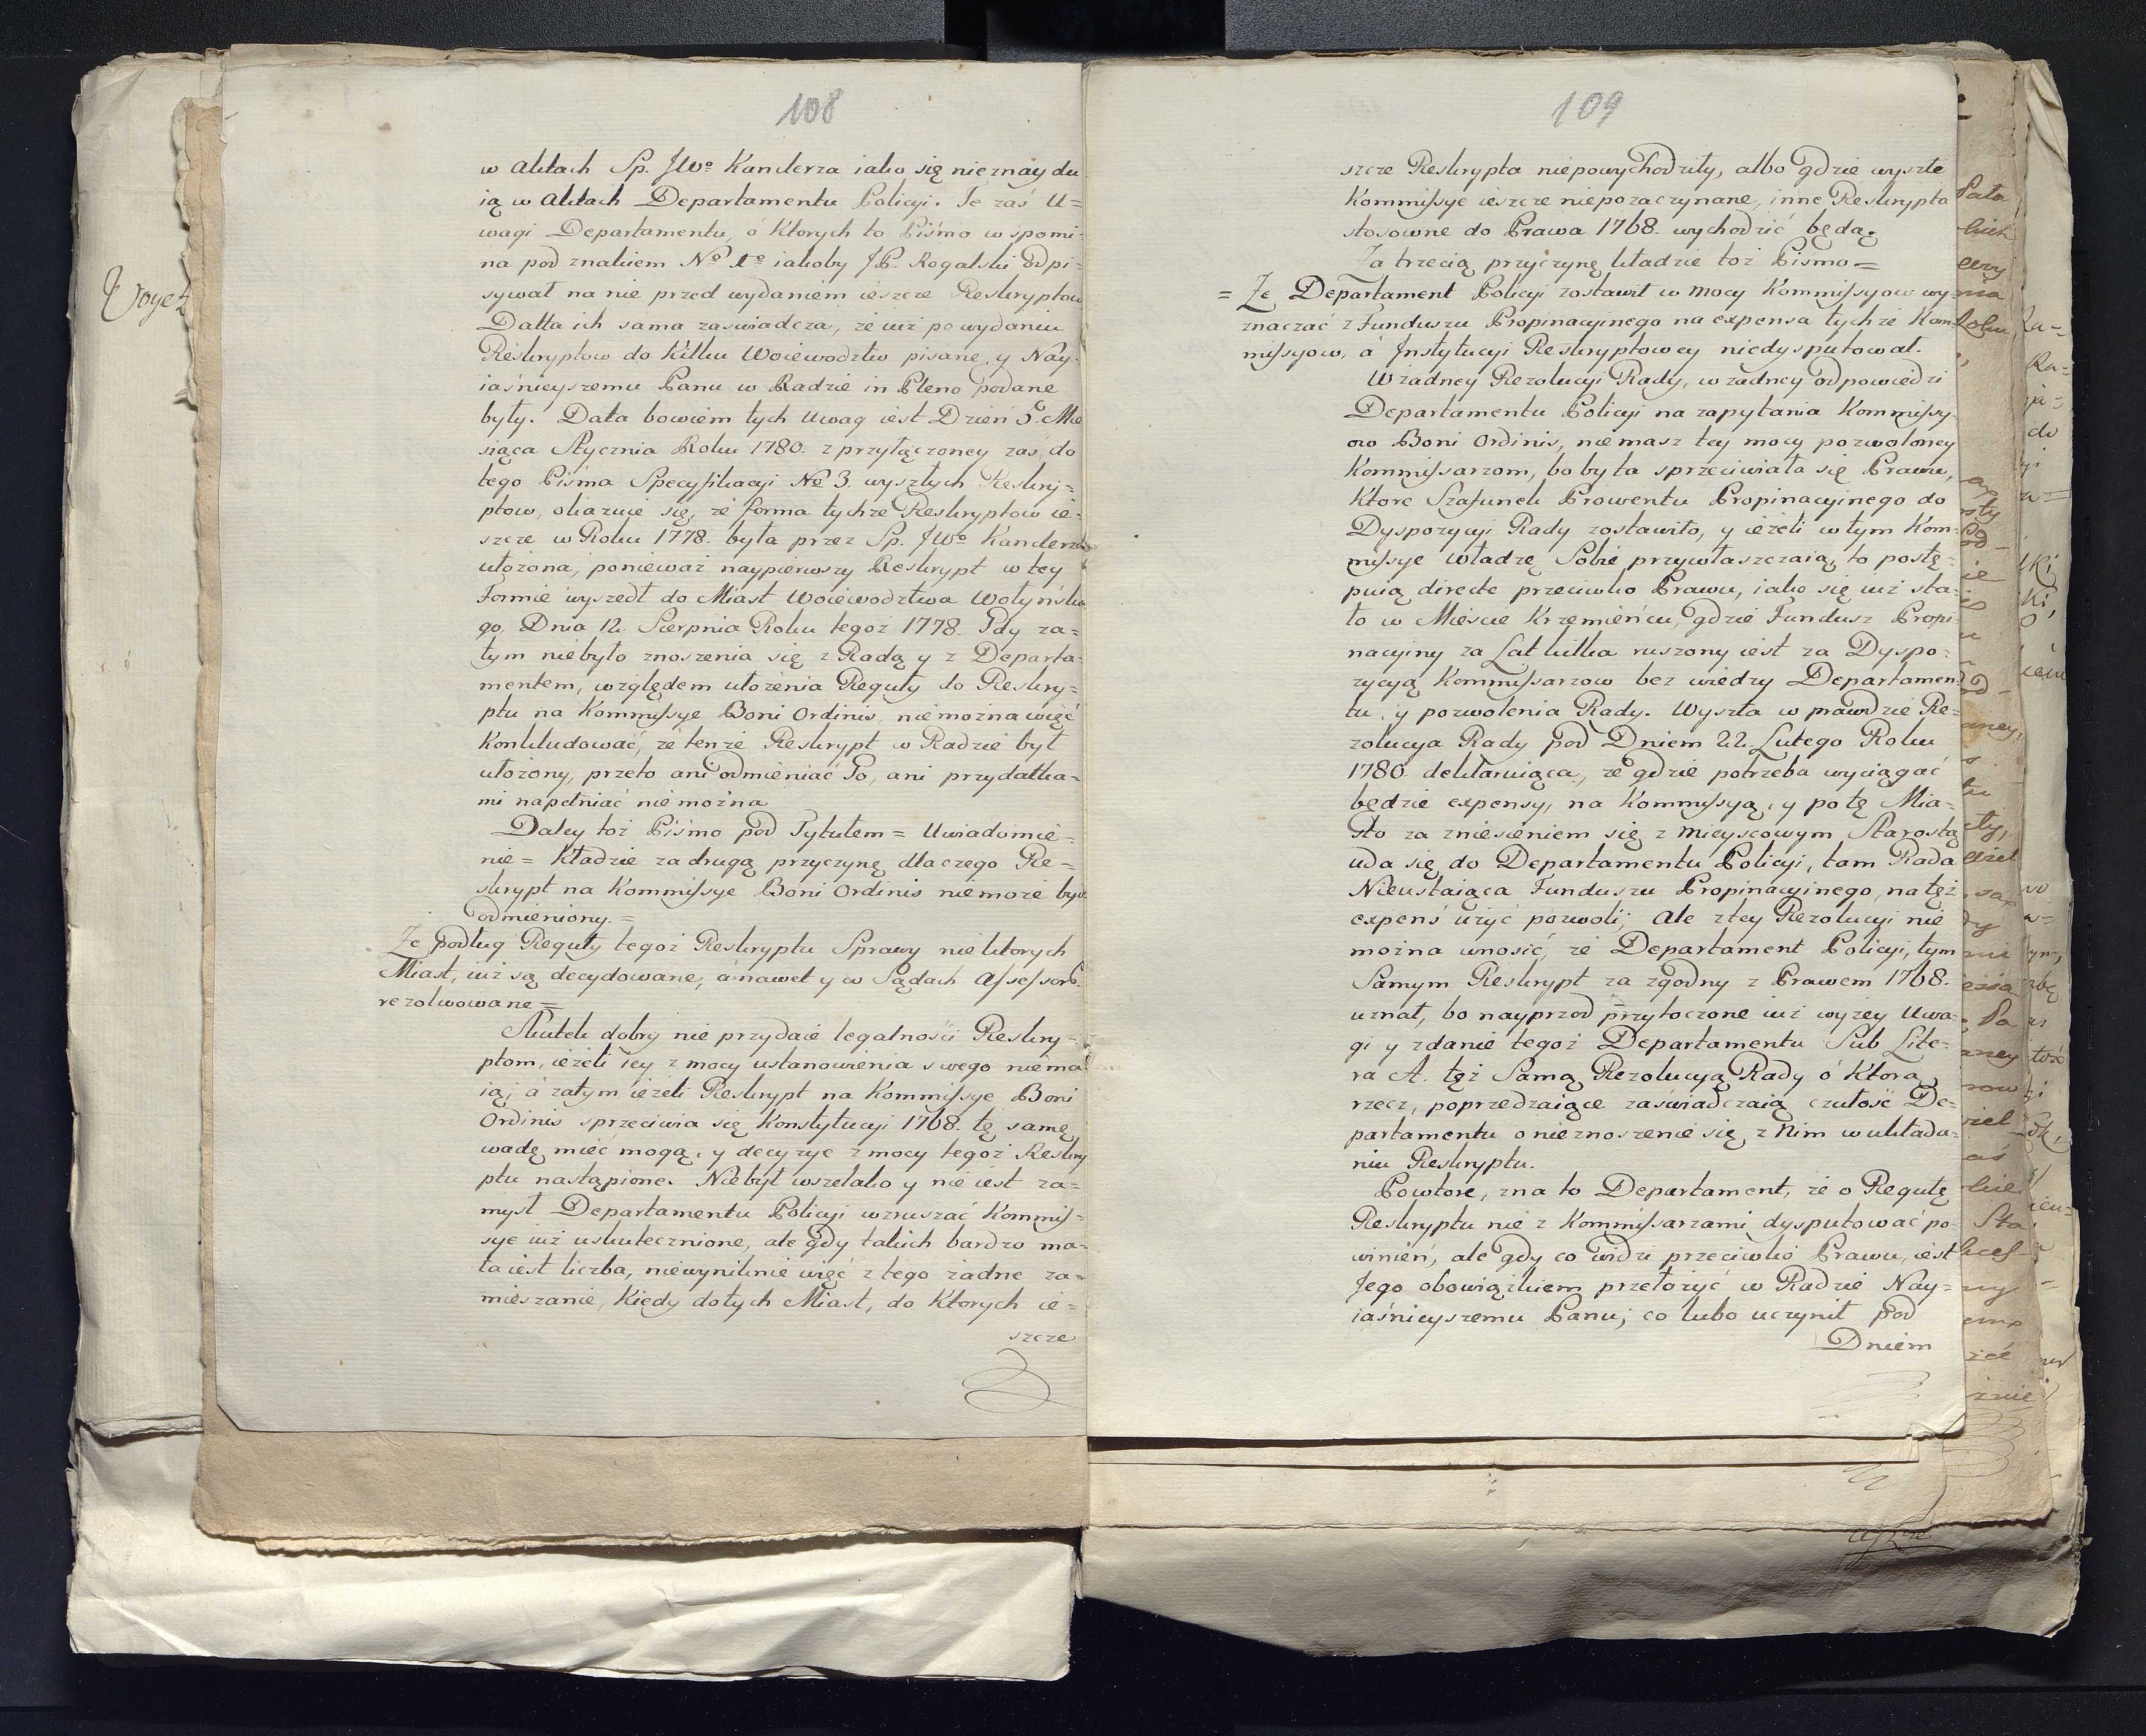 108
w aktach Sp. JWo Kanclerza iako się nieznaydu
ią w aktach Departamentu Policyi. Te zaś U=
wagi Departamentu, o których to Pismo wspomi=
na pod znakiem No 1o iakoby JP. Rogalski odpi=
sywał na nie przed wydaniem ieszcze Reskryptow
Datta ich sama zaswiadcza, że iuż po wydaniu
Reskryptow do kilku Woiewodztw pisane, y Nay=
iaśnieyszemu Panu w Radzie in Pleno podane
były. Data bowiem tych Uwag iest Dzień 5o Mie
siąca Stycznia Roku 1780. z przyłączoney zaś do
tego Pisma Specyfikacyi No 3. wyszłych Reskry=
ptow, okazuie się, że forma tychże Reskryptow ie=
szcze w Roku 1778. była przez Sp. JWo Kanclerza
ułożona, ponieważ naypierwszy Reskrypt w tey
Formie wyszedł do Miast Woiewodztwa Wołyńskie
go, Dnia 12. Sierpnia Roku tegoż 1778. Gdy za=
tym niebyło znoszenia się z Radą y z Departa=
mentem, względem ułożenia Reguły do Reskry=
ptu na Kommissye Boni Ordinis, nie można więc
konkludować, że tenże Reskrypt w Radzie był
ułożony, przeto ani odmieniać Go, ani przydatka=
mi napełniać nie można
Daley toż Pismo pod Tytułem = Uwiadomie=
nie = kładzie za drugą przyczynę dlaczego Re=
skrypt na Kommissye Boni Ordinis nie może być
odmieniony. =
Że podług Reguły tegoż Reskryptu Sprawy niektorych
Miast, iuż są decydowane, a nawet y w Sądach Assessors.
rezolwowane =
Skutek dobry nie przydaie legalności Reskry=
ptom, ieżeli iey z mocy ustanowienia swego niema
ią; a zatym ieżeli Reskrypt na Kommissye Boni
Ordinis sprzeciwia się Konstytucyi 1768. tę samę
wadę mieć mogą, y decyzye z mocy tegoż Reskry
ptu nastąpione. Niebył wszelako y nie iest za=
mysł Departamentu Policyi wzruszać Kommis=
sye iuż uskutecznione, ale gdy takich bardzo ma=
ła iest liczba, niewyniknie więc z tego żadne za=
mieszanie, kiedy do tych Miast, do których ie=
szcze
109
szcze Reskrypta niepowychodziły, albo gdzie wyszłe
Kommissye ieszcze niepozaczynane, inne Reskrypta
stosowne do Prawa 1768. wychodzić będą.
Za trzecią przyczynę kładzie toż Pismo =
= Że Departament Policyi zostawił w mocy Kommissyow wy=
znaczać z Funduszu Propinacyinego na expensa tychże Kom=
missyow, a Instytucyi Reskryptowey niedysputował.
W żadney Rezolucyi Rady, w żadney odpowiedzi
Departamentu Policyi na zapytania Kommissy=
ow Boni Ordinis, nie masz tey mocy pozwoloney
Kommissarzom, bo by ta sprzeciwiała się Prawu,
które Szafunek Prowentu Propinacyinego do
Dyspozycyi Rady zostawiło, y ieżeli w tym Kom=
missye władzę Sobie przywłaszczaią, to postę=
puią directe przeciwko Prawu, iako się iuż sta=
ło w Mieście Krzemieńcu, gdzie Fundusz Propi=
nacyiny za Lat kilka ruszony iest za Dyspo=
zycyą Kommissarzow bez wiedzy Departamen=
tu, y pozwolenia Rady. Wyszła w prawdzie Re=
zolucya Rady pod Dniem 22. Lutego Roku
1780. deklaruiąca, że gdzie potrzeba wyciągać
będzie expensy, na Kommissyą, y po tę Mia=
sto za zniesieniem się z mieyscowym Starostą
uda się do Departamentu Policyi, tam Rada
Nieustaiąca Funduszu Propinacyinego, na też
expens użyć pozwoli; Ale z tey Rezolucyi nie
można wnosić, że Departament Policyi, tym
Samym Reskrypt za zgodny z Prawem 1768.
uznał, bo nayprzod przytoczone iuż wyżey Uwa=
gi y zdanie tegoż Departamentu Sub Lite=
ra A. tęż Samą Rezolucyą Rady o którą
rzecz, poprzedzaiące zaświadczaią czułość De=
partamentu o nieznoszenie się z Nim w układa=
niu Reskryptu.
Powtore, zna to Departament, że o Regułę
Reskryptu nie z Kommissarzami dysputować po=
winien, ale gdy co widzi przeciwko Prawu, iest
Jego obowiązkiem przełożyć w Radzie Nay=
iaśnieyszemu Panu; co lubo uczynił pod
Dniem